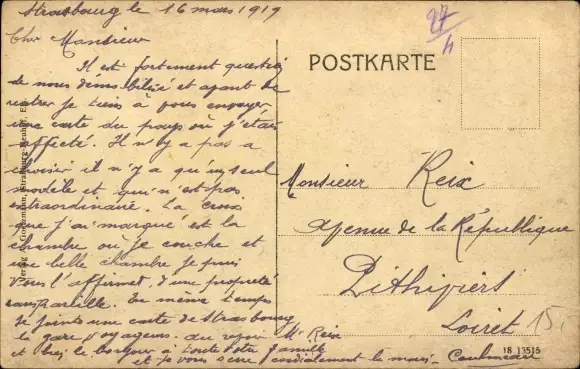 Strasbourg le 16 mars 1919
Cher Monsieur
Il est fortement question
de nous démobilisé et avant de
rentrer je tiens à vous envoyer
une carte du pays où j'étais
affecté. Il n'y a pas a
choisir il n'y a qu'un seul
modèle et qui n'est pas
extraordinaire. La croix
que j'ai marqué est la
chambre ou je couche et
une belle chambre je puis
vous l'affirmer, d'une propreté
En même temps
je joints une carte de Strasbourg
la gare Voyageurs. au revoir Mr Reix
et bien le bonjour à toute votre famille
et je vous serre cordialement la main
27
4
POSTKARTE
Monsieur Reix
Avenue de la République
Pithiviers
Loiret
15.
18 13515